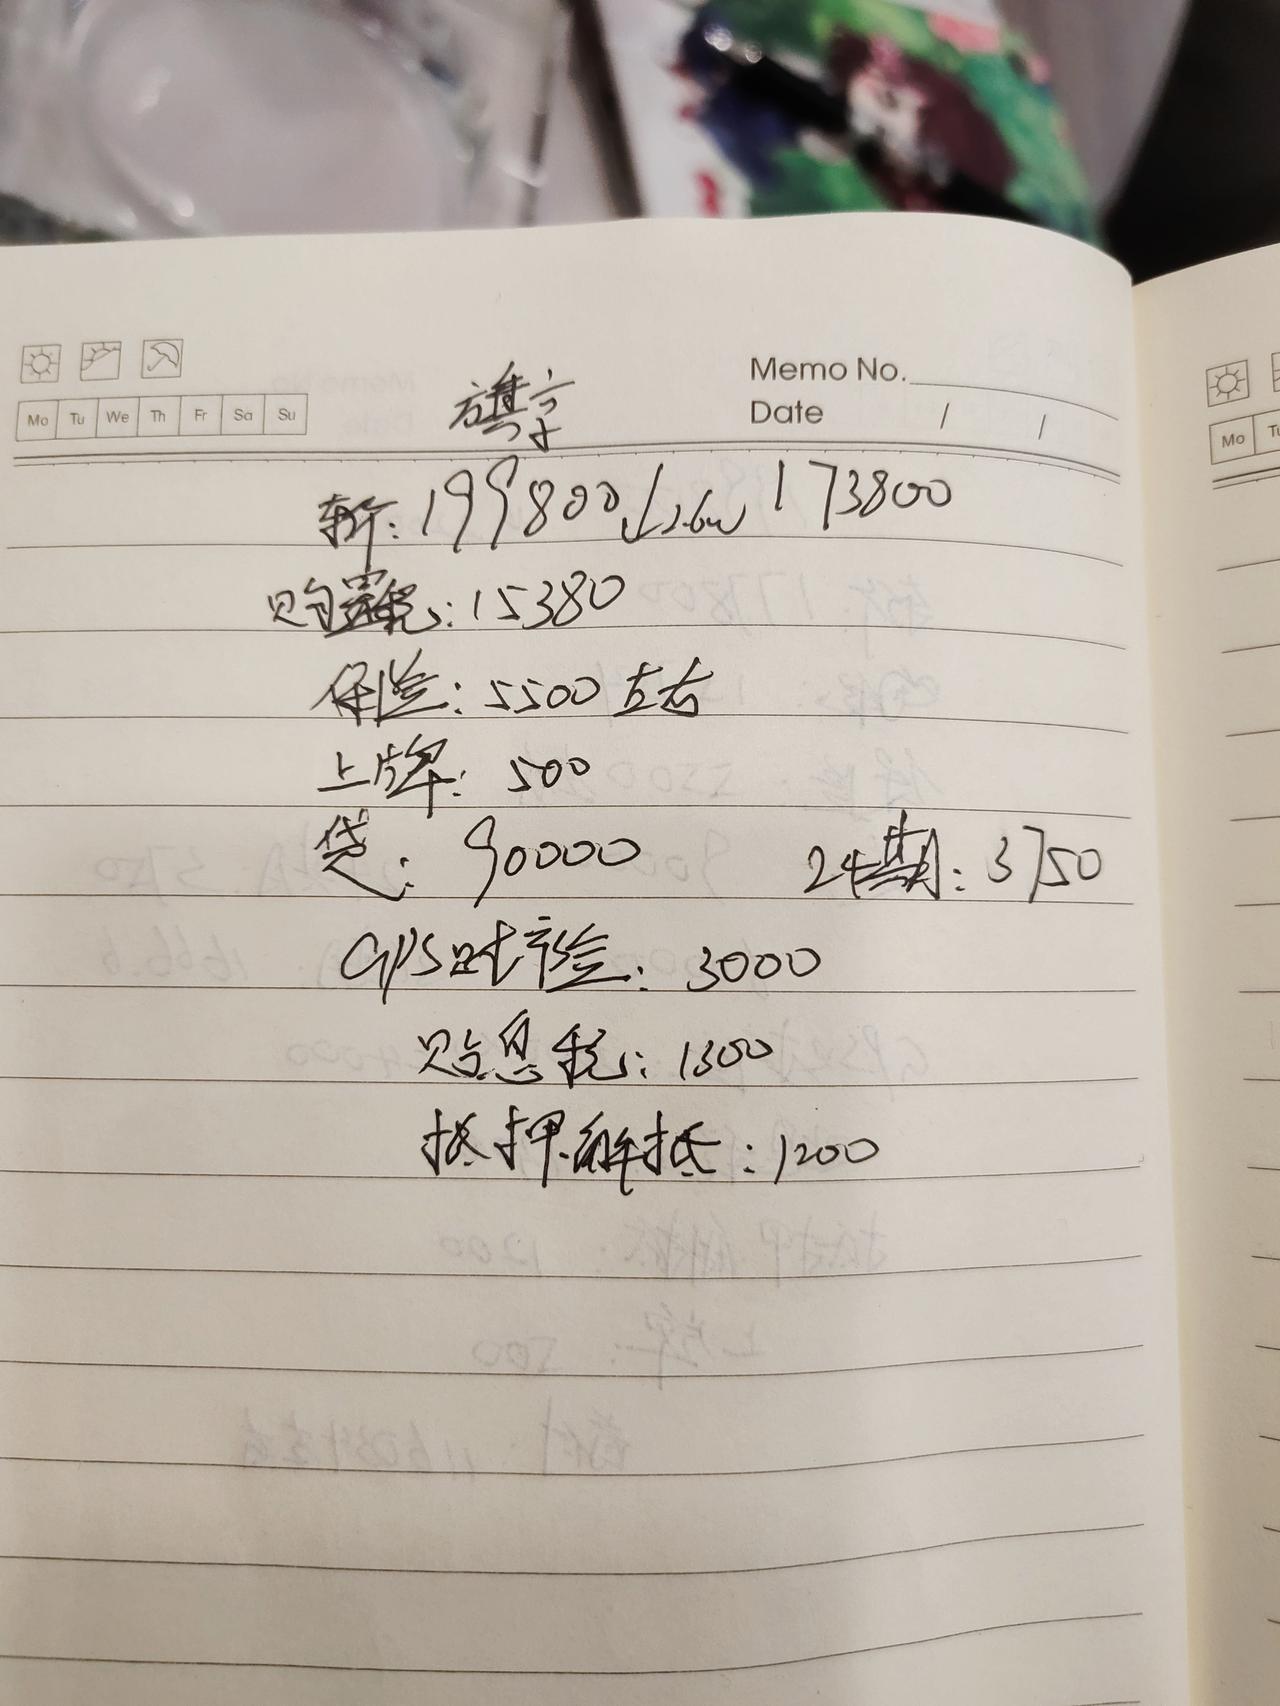 Memo No.
Mo Tu We Th Fr Sa Su
旗享
Date / /
车价: 199800 ↓2.6w 173800
购置税: 15380
保险: 5500 左右
上牌: 500
贷: 90000 24期: 3750
GPS 盗险: 3000
贴息税: 1300
抵押解抵: 1200
Mo